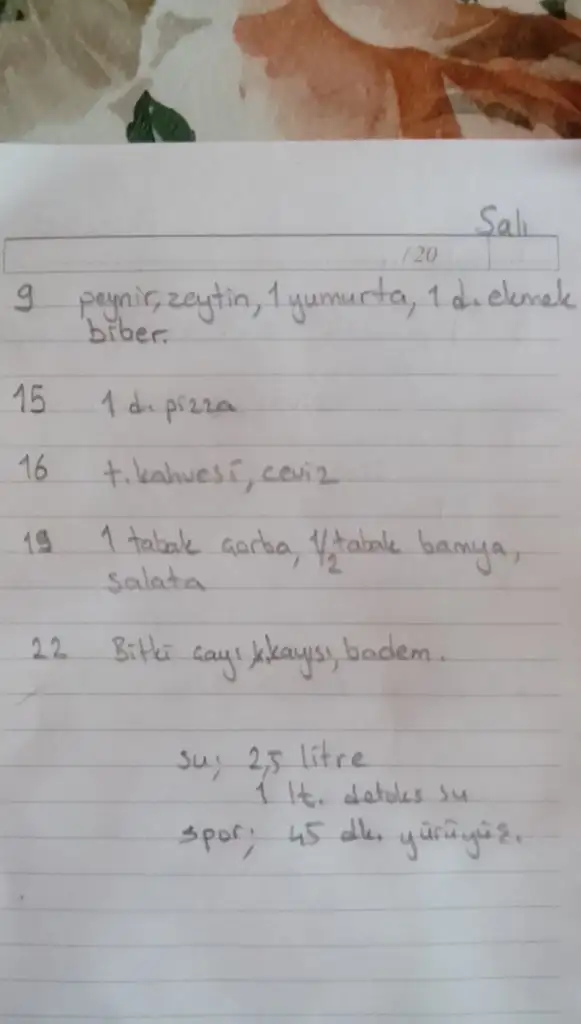 Salı
/20
9 peynir, zeytin, 1 yumurta, 1 d. ekmek
biber.
15 1 d. pizza
16 t. kahvesi, ceviz
19 1 tabak çorba, 1/2 tabak bamya,
salata
22 Bitki çayı, k.kayısı, badem.
su; 2,5 litre
1 lt. detoks su
spor; 45 dk. yürüyüş.